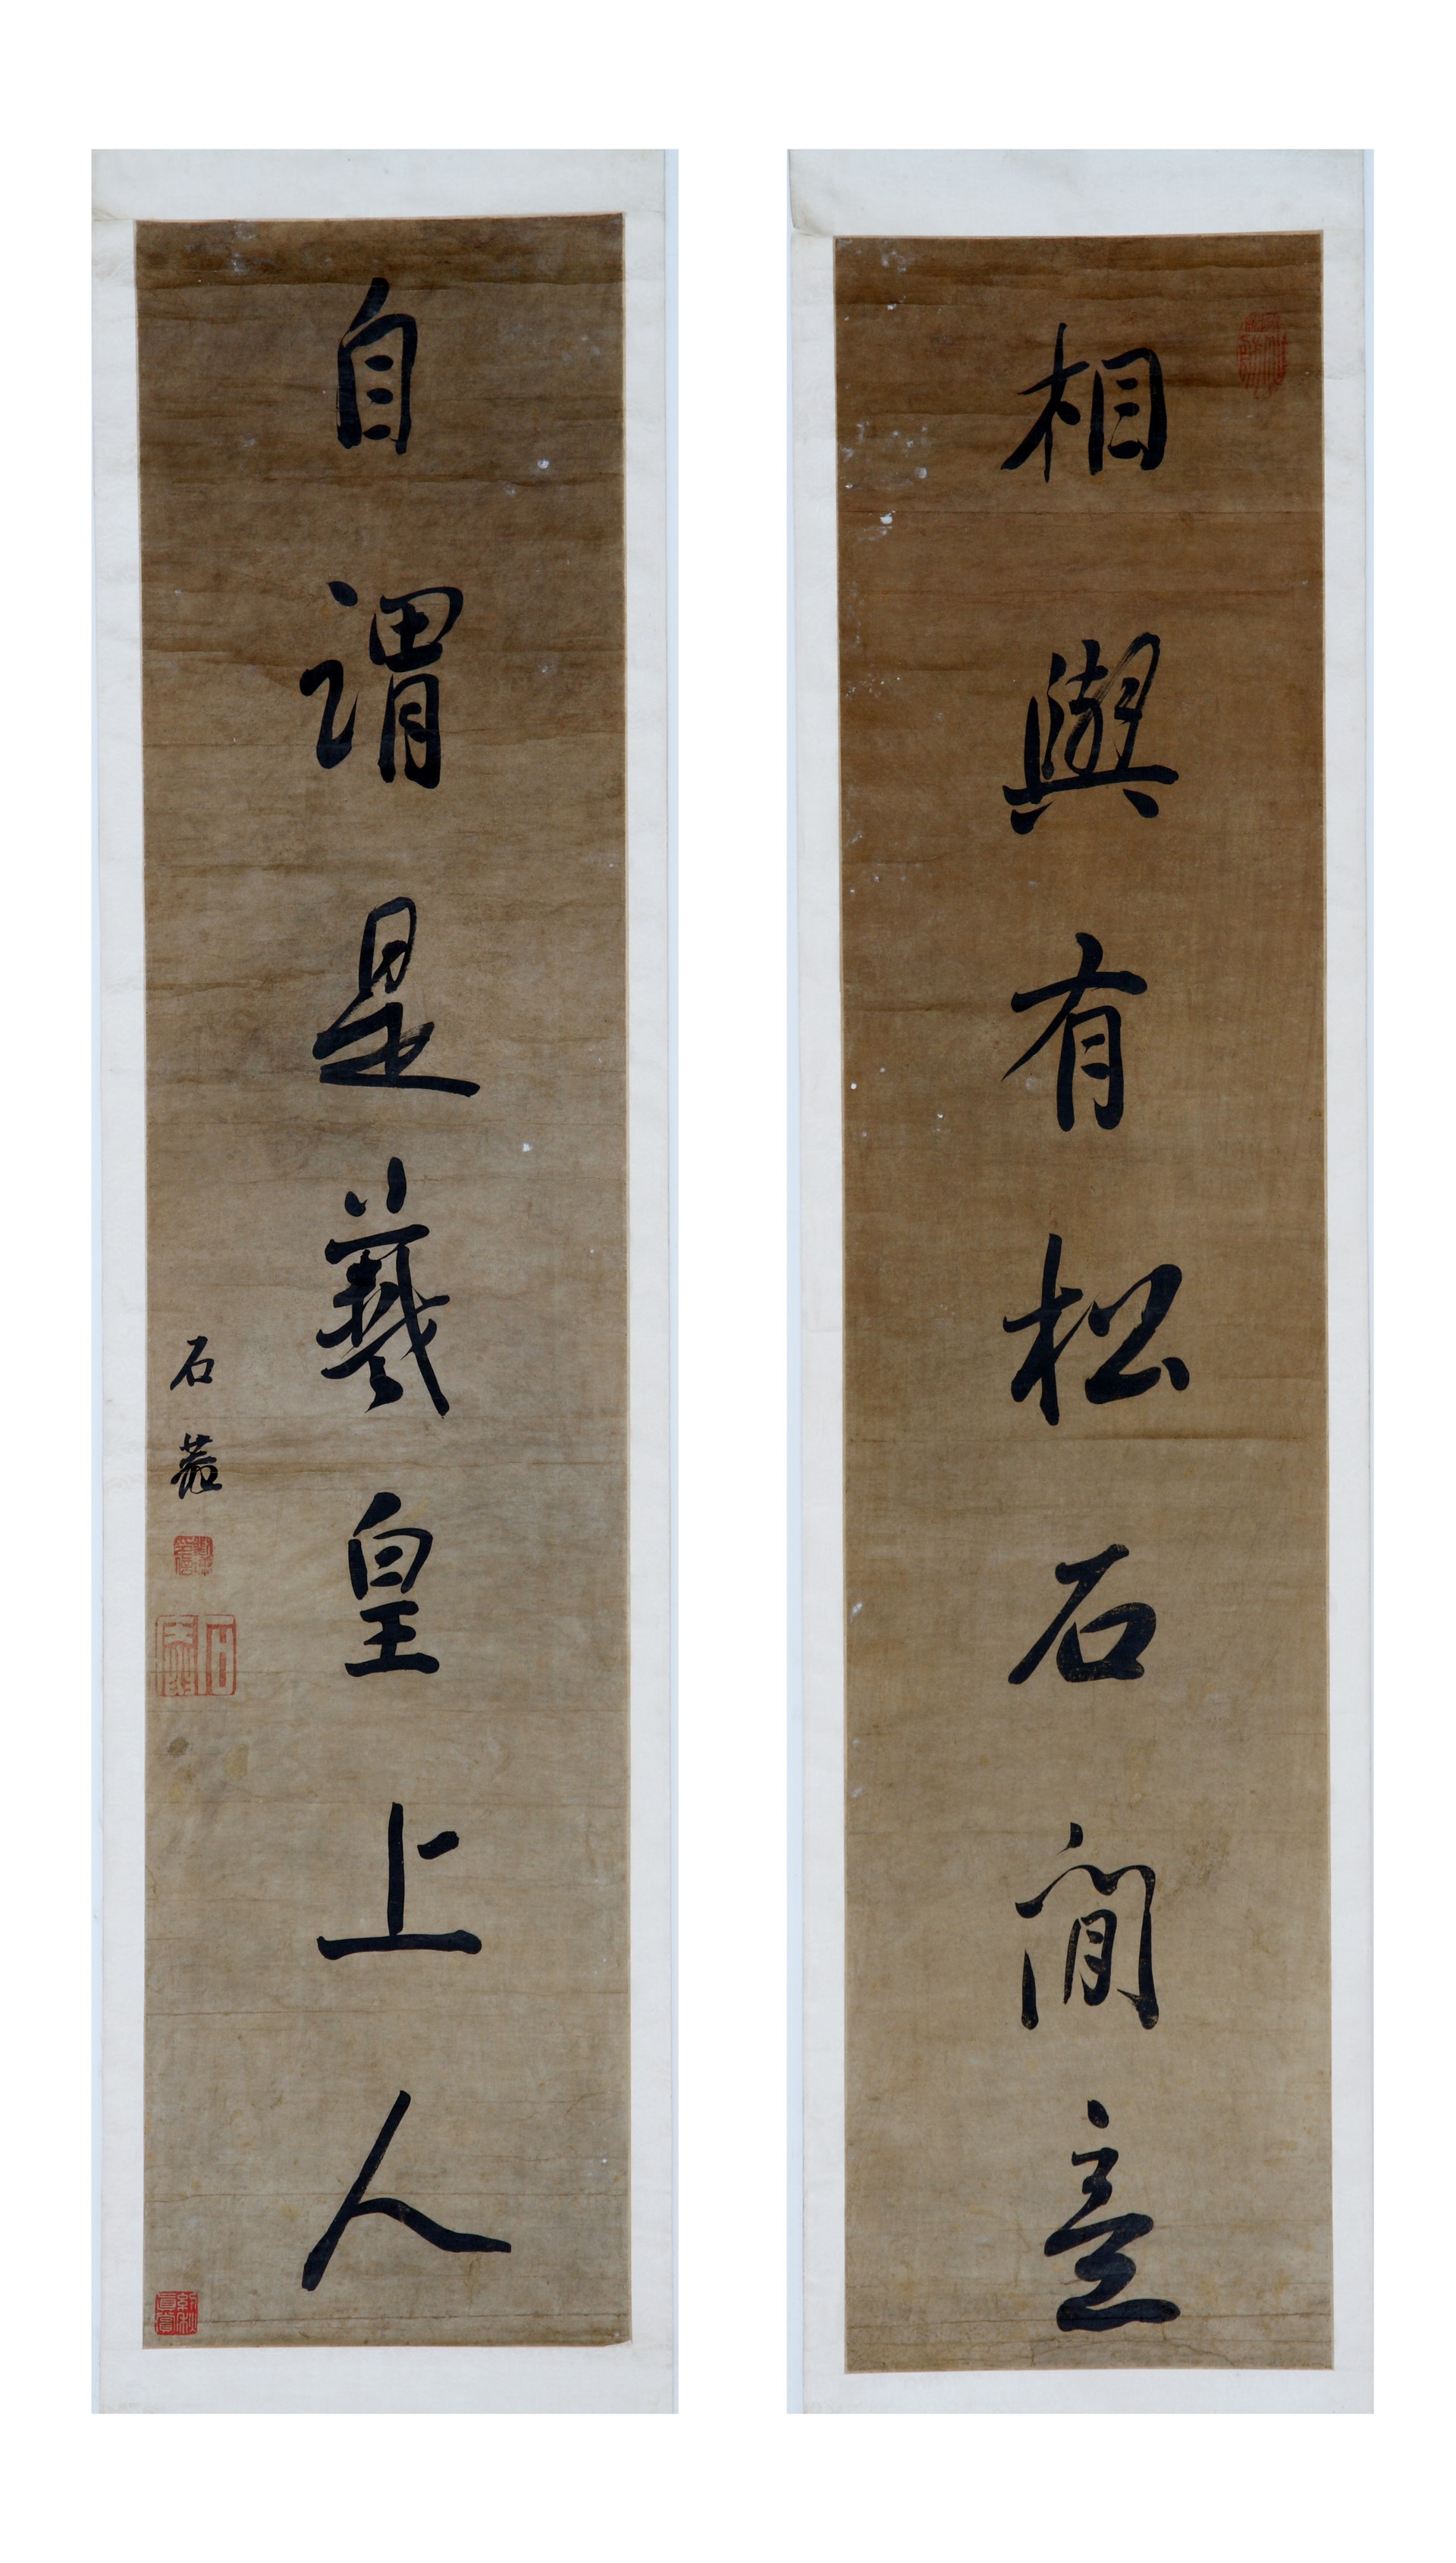 相與有松石間意
自謂是羲皇上人
石菴
石菴